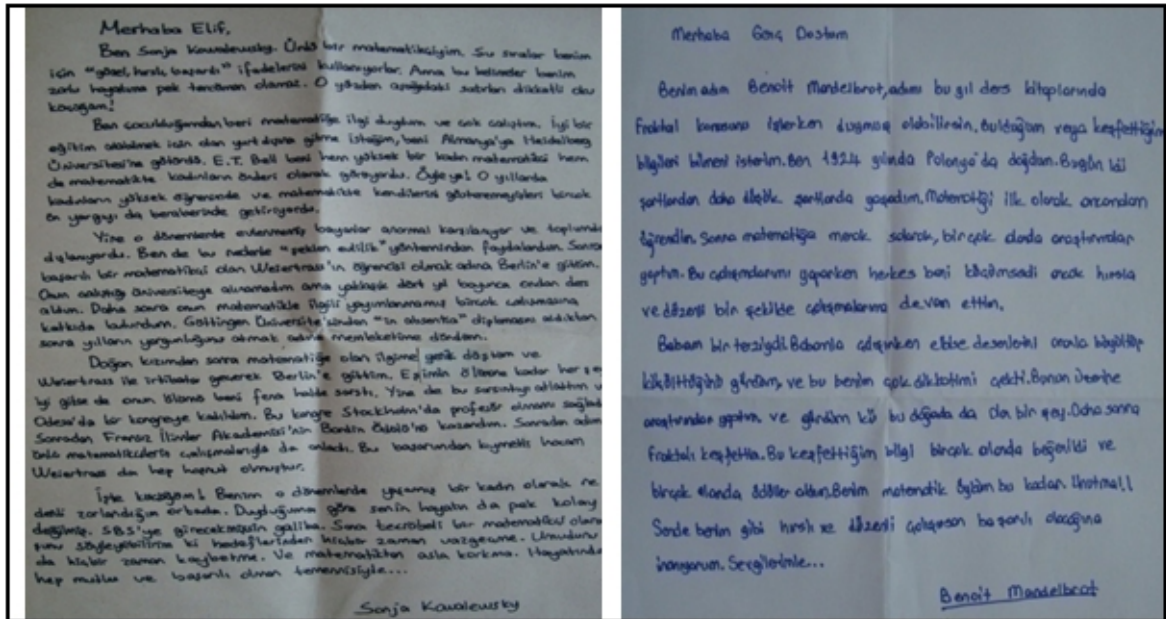 Merhaba Elif,
Ben Sonja Kowalewsky. Ünlü bir matematikçiyim. Şu sıralar benim
için "güzel, hırslı, başarılı" ifadelerini kullanıyorlar. Ama bu kelimeler benim
zorlu hayatıma pek tercüman olamaz. O yüzden aşağıdaki satırları dikkatli oku
kocağam!
Ben çocukluğumdan beri matematiğe ilgi duydum ve çok çalıştım. İyi bir
eğitim alabilmek için olan yurt dışına gitme isteğim, beni Almanya'ya Heidelberg
Üniversitesi'ne götürdü. E.T. Bell beni hem yüksek bir kadın matematikçi hem
de matematikte kadınların önderi olarak görüyordu. Öyle ya! O yıllarda
kadınların yüksek öğrenimde ve matematikte kendilerini gösteremeyişleri birçok
ön yargıyı da beraberinde getiriyordu.
Yine o dönemlerde evlenmemiş bayanlar anormal karşılanıyor ve toplumda
dışlanıyordu. Ben de bu nedenle "şeklen evlilik" yönteminden faydalandım. Sonra
başarılı bir matematikçi olan Weiertrass'ın öğrencisi olmak adına Berlin'e gittim.
Onun çalıştığı üniversiteye alınamadım ama yaklaşık dört yıl boyunca ondan ders
aldım. Daha sonra onun matematikle ilgili yayımlanmamış birçok çalışmasına
katkıda bulundum. Göttingen Üniversite'sinden "in absentia" diplomamı aldıktan
sonra yılların yorgunluğunu atmak adına memleketime döndüm.
Doğan kızımdan sonra matematiğe olan ilgime yenik düştüm ve
Weiertrass ile irtibata geçerek Berlin'e gittim. Eşimin ölümüne kadar her şey
iyi gitse de onun ölümü beni fena halde sarstı. Yine de bu sarsıntıyı atlattım v
Odesa'da bir kongreye katıldım. Bu kongre Stockholm'da profesör olmamı sağladı
Sonradan Fransız İlimler Akademisi'nin Bordin Ödülü'nü kazandım. Sonradan adım
ünlü matematikçilerin çalışmalarıyla da anıldı. Bu başarımdan kıymetli hocam
Weiertrass da hep hoşnut olmuştur.
İşte kocağam! Benim o dönemlerde yaşamış bir kadın olarak ne
denli zorlandığım ortada. Duyduğuma göre senin hayatın da pek kolay
değilmiş. SBS'ye girecekmişsin galiba. Sana tecrübeli bir matematikçi olarak
şunu söyleyebilirim ki hedeflerinden hiçbir zaman vazgeçme. Umudunu
da hiçbir zaman kaybetme. Ve matematikten asla korkma. Hayatında
hep mutlu ve başarılı olman temennisiyle...
Sonja Kowalewsky
Merhaba Genç Dostum
Benim adım Benoit Mandelbrot, adımı bu yıl ders kitaplarında
Fraktal konusunu işlerken duymuş olabilirsin. Bulduğum veya keşfettiğim
bilgileri bilmeni isterim. Ben 1924 yılında Polonya'da doğdum. Bugün ki
şartlardan daha düşük şartlarda yaşadım. Matematiği ilk olarak amcamdan
öğrendim. Sonra matematiğe merak salarak, birçok alanda araştırmalar
yaptım. Bu çalışmalarımı yaparken herkes beni küçümsedi ancak hırslı
ve düzenli bir şekilde çalışmalarıma devam ettim.
Babam bir terziydi. Babamla çalışırken elbise desenlerini oranla büyültüp
küçülttüğünü gördüm, ve bu benim çok dikkatimi çekti. Bunun üzerine
araştırmalar yaptım, ve gördüm ki bu doğada da olan bir şey. Daha sonra
Fraktalı keşfettim. Bu keşfettiğim bilgi birçok alanda beğenildi ve
birçok alanda ödüller aldım. Benim matematik öyküm bu kadar. Unutma!!
Sende benim gibi hırslı ve düzenli çalışırsan başarılı olacağına
inanıyorum. Sevgilerimle...
Benoit Mandelbrot